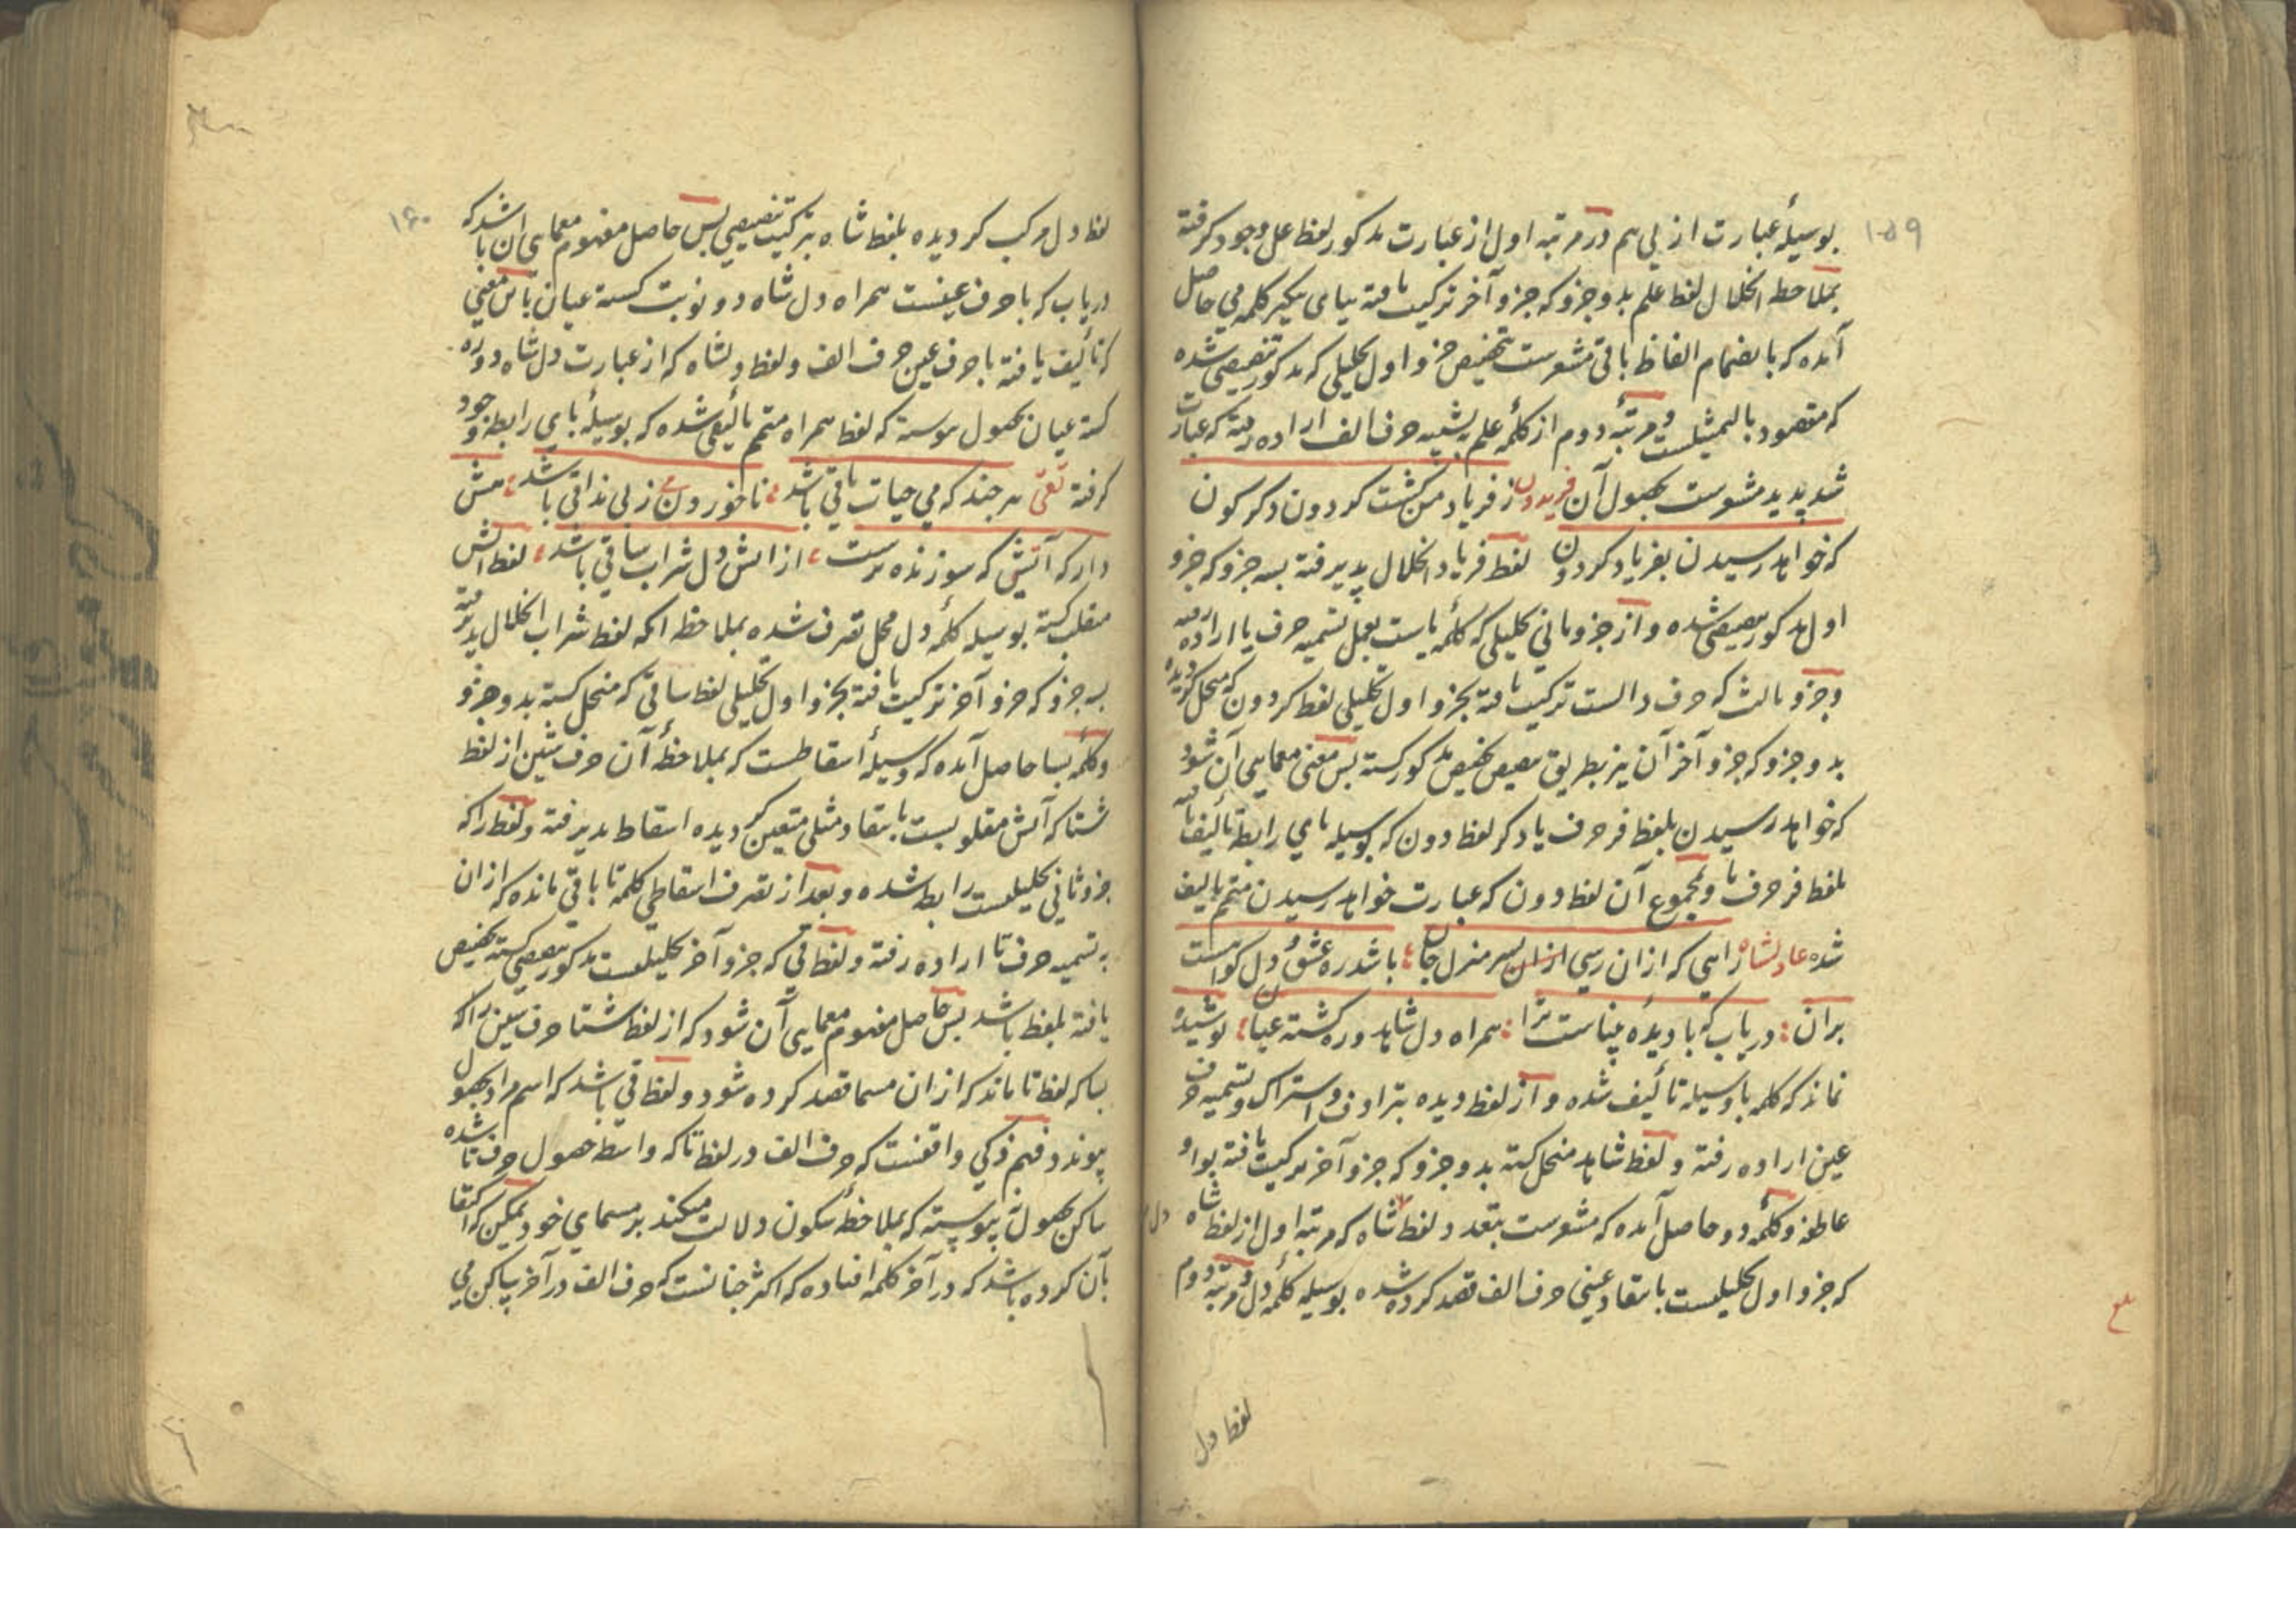 ۱۵۹
بوسیلهٔ عبارت از پی هم در مرتبه اول از عبارت مذکور لفظ عل وجود گرفته
بملاحظه انحلال لفظ علم بدو جزو که جزو آخر ترکیب یافته بیای یکیر کلمه می حاصل
آمده که بانضمام الفاظ باقی مشعرست تخصیص جزو اول تحلیلی که مذکور تنصیصی شده
که مقصود بالتمثیلست و مرتبهٔ دوم از کلمهٔ علم بتشبیه حرف الف اراده رفته که عبارت
شد پدید مشعرست بحصول آن فریدون ز فریاد من گشت گردون دگرگون
که خواهد رسیدن بفریاد گردون لفظ فریاد انحلال پذیرفته بسه جزو که جزو
اول مذکور تنصیصی شده و از جزو ثانی تحلیلی که کلمهٔ یاست بعمل تسمیه حرف یا اراده رفته
و جزو ثالث که حرف دالست ترکیب یافته بجزو اول تحلیلی لفظ گردون که منحل گردیده
بدو جزو که جزو آخر آن نیز بطریق تنصیص تخصیص مذکور گشته پس معنی معمایی آن شود
که خواهد رسیدن بلفظ فر حرف یا دگر لفظ دون که بوسیله بای رابطه تألیف یافته
بلفظ فر حرف یا و مجموع آن لفظ دون که عبارت خواهد رسیدن متمم تألیف
شده عادلشاه راهی که ازان رسی ازان بسر منزل جان باشد ره عشق و دل گواهست
بران دریاب که با دیدهٔ بیناست ترا همراه دل شاهد و ره گشته عیان پوشیده
نماند که کلمه با وسیله تألیف شده و از لفظ دیده بترادف و اشتراک و تسمیه حرف
عین اراده رفته و لفظ شاهد منحل گشته بدو جزو که جزو آخر ترکیب یافته بواو
عاطفه و کلمهٔ دو حاصل آمده که مشعرست بتعدد لفظ شاه که مرتبه اول از لفظ شاه
که جزو اول تحلیلیست بانتقاد عینی حرف الف قصد کرده شده بوسیله کلمهٔ دل و مرتبهٔ دوم
لفظ دل
۱۶۰
لفظ دل مرکب گردیده بلفظ شاه بترکیب تنصیصی پس حاصل مفهوم معمایی آن باشد که
دریاب که با حرف عینست همراه دل شاه دو نوبت گشته عیان باین معنی
که تألیف یافته با حرف عین حرف الف و لفظ دلشاه که از عبارت دل شاه دو ره
گشته عیان بحصول پیوسته که لفظ همراه متمم تألیفی شده که بوسیلهٔ بای رابطه وجود
گرفته تقی هر چند که می حیات باقی باشد ناخوردن می ز بی مذاقی باشد مش
دار که آتش که سوزنده ترست از آتش دل شراب ساقی باشد لفظ آتش
منقلب گشته بوسیله کلمهٔ دل محل تصرف شده بملاحظه آنکه لفظ شراب انحلال پذیرفته
بسه جزو که جزو آخر ترکیب یافته بجزو اول تحلیلی لفظ ساقی که منحل گشته بدو جزو
و کلمهٔ بسا حاصل آمده که وسیلهٔ اسقاطست که بملاحظهٔ آن حرف شین از لفظ
شتا که آتش مقلوبست بانتقاد مثلی متعین گردیده اسقاط پذیرفته و لفظ را که
جزو ثانی تحلیلیست رابط شده و بعد از تصرف اسقاطی کلمه تا باقی مانده که ازان
به تسمیه حرف تا اراده رفته و لفظ قی که جزو آخر تحلیلیست مذکور تنصیصی گشته تخصیص
یافته بلفظ باشد پس حاصل مفهوم معمایی آن شود که از لفظ شتا حرف شین را که
بسا که لفظ تا ماند که ازان مسما قصد کرده شود و لفظ قی باشد که اسم مراد بحصول
پیوندد و فهم ذکی واقفست که حرف الف در لفظ تا که واسطه حصول حرف تا شده
ساکن بحصول پیوسته که بملاحظهٔ سکون دلالت میکند بر مسمای خود لیکن که اکتفا
بآن کرده باشد که در آخر کلمه افتاده که اکثر چنانست که حرف الف در آخر ساکن می